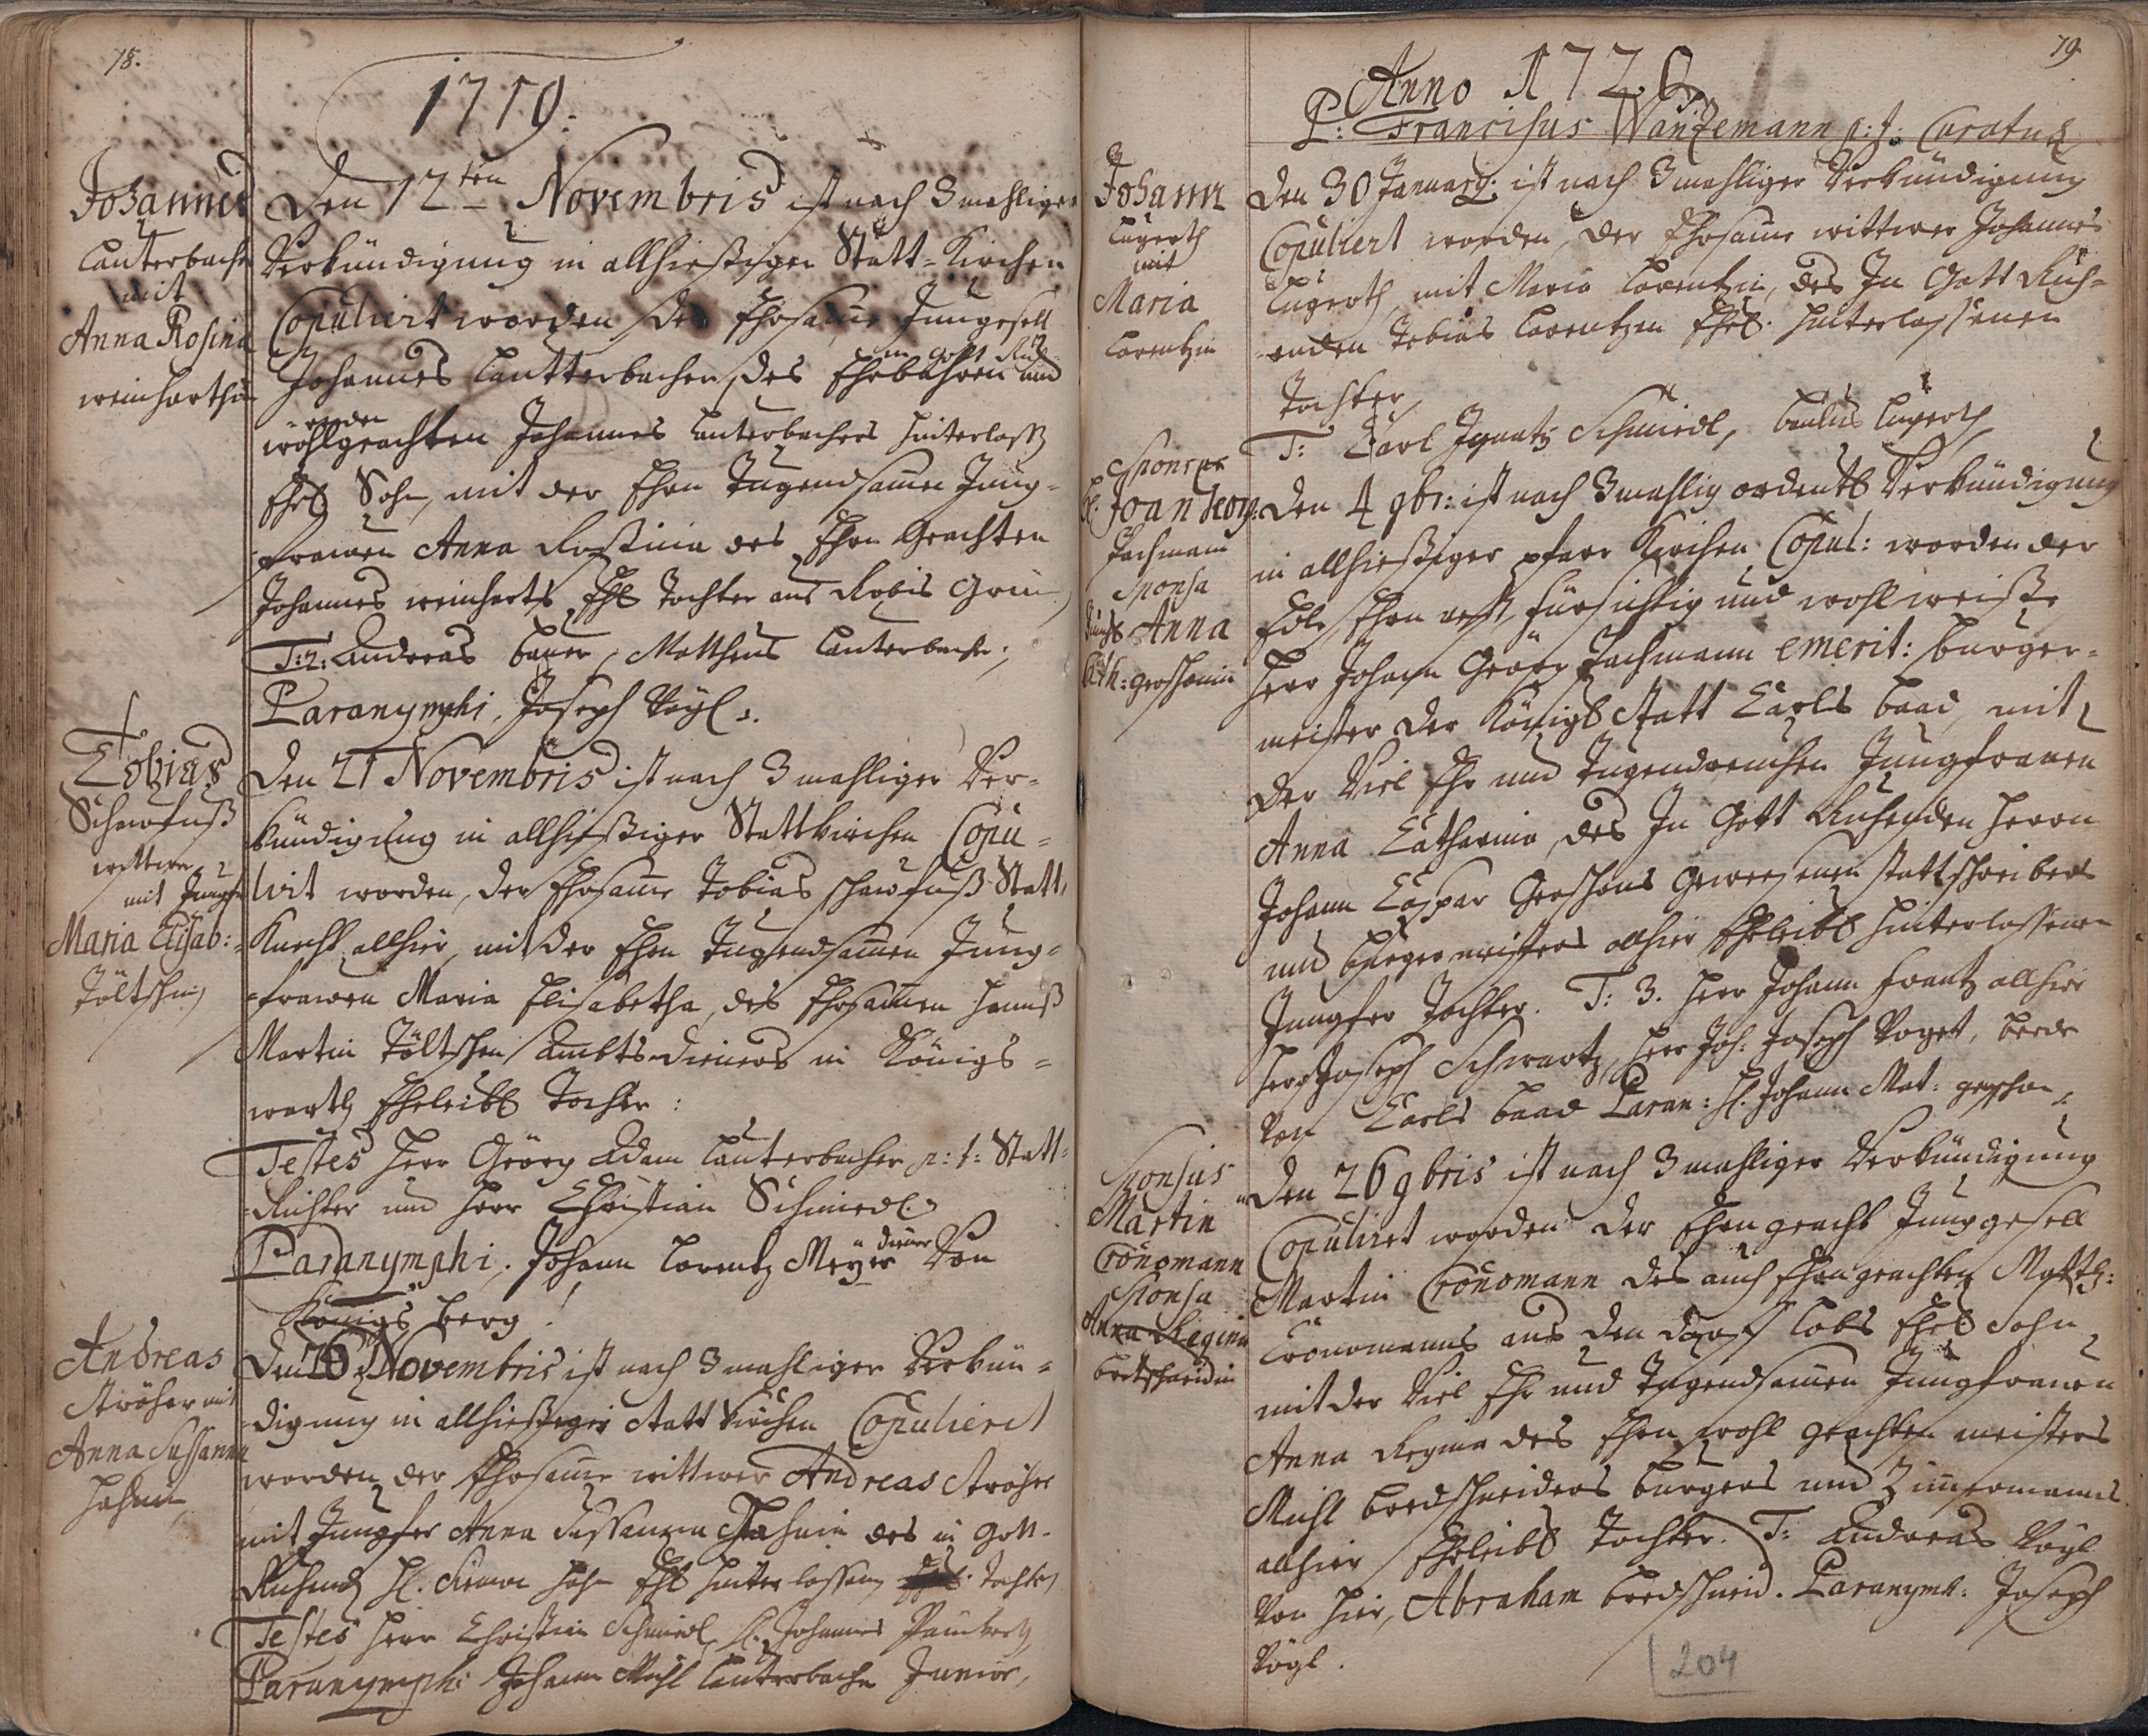 78.
1719.
Johannes
Lauterbacher
mit
Anna Rosina
weinharthin
Den 12ten Novembris ist nach 3 mahliger
Verkündigung in allhießiger Statt-Kirchen
Copulirt worden der Ehrsame Jungesell
Johannes Lautterbacher, des Ehrbahren und
in Gott Ruh-
enden
wohlgeachten Johannes Lauterbachers hinterlaß
Ehel Sohn, mit der Ehrn Tugendsamen Jung-
frawen Anna Rosina des Ehrn Geachten
Johannes weinharts Ehl Tochter aus Robis Grün
T: 2: Andreas bauer, Mattheus Lauterbacher,
Paranymphi, Joseph Vogl.
Tobias
Scharfuß
wittwer
mit Jungfr
Maria Elisab:
Töltschin
Den 21 Novembris ist nach 3 mahliger Ver-
kündigung in allhießiger Stattkirchen Copu-
lirt worden, der Ehrsame Tobias scharfuß Statt
Knecht allhier, mit der Ehrn Tugendsamen Jung-
frawen Maria Elisabetha, des Ehrsamen Hannß
Martin Töltschen Ambts-dieners in Königs-
warth Eheleibl Tochter:
Testes Herr Georg Adam Lauterbacher p: t: Statt-
Richter und Herr Christian Schmiedl.
Paranymphi, Johann Lorentz Meyer diener Von
Königs berg.
Andreas
Ströher mit
Anna Sussanna
Hahnin
Den 26 Novembris ist nach 3 mahliger Verkün-
digung in allhießiger statt kirchen Copuliert
worden der Ehrsame wittwer Andreas Ströher
mit Jungfer Anna Sussanna Hahnin des in Gott-
Ruhend H. Simon Hahn Ehl hinterlassen Tochter
Testes Herr Christian Schmiedl, H. Johannes
Paranymphi Johann Michl Lauterbacher Junior,
79.
Anno 1720
P: Franciscus Wantzemann p: t: Curatus
Johann
Lugerth
mit
Maria
Lorentzin
Den 30 January ist nach 3 mahliger Verkündigung
Copuliert worden, der Ehrsame wittwer Johannes
Lugerth, mit Maria Lorentzin, des In Gott Ruh-
enden Tobias Lorentzen Ehel. hinterlassenen
Tochter,
T: Carl Ignatz Schmiedl, Paulus Lugerth
Sponsus
H. Joan Georg:
Jachmann
Sponsa
Anna
Cath: Gerschonin
Den 4 9br: ist nach 3 mahlig ordentl Verkündigung
in allhießiger pfarr Kirchen Copul: worden der
Edle, Ehrn vest, fürsichtig und wohl weiße
Herr Johann Georg Jachmann emerit: burger-
meister der Königl statt Carls baad, mit
der Viel Ehr und Tugendreichen Jungfrauen
Anna Catharina, des In Gott Ruhenden Herrn
Johann Caspar Gerschons Gewesenen stattschreibers
und burgermeisters allhier Eheleibl hinterlassenen
Jungfer Tochter. T: 3. Herr Johann Frantz allhier
Herr Joseph Schwartz, Herr Joh: Joseph Voget, beede
Von Carls baad Paran: H. Johann Mat: gerschon
Sponsus
Martin
Cronomann
Sponsa
Anna Regina
bretschneidin
Den 26 9bris ist nach 3 mahliger Verkündigung
Copulirt worden der Ehrn geacht Junggesell
Martin Cronomann des auch Ehrn geachten Matth:
Cronomanns aus den dorff Lobs Ehel Sohn
mit der Viel Ehr und Tugendsamen Jungfrauen
Anna Regina des Ehrn wohl geachten meisters
Michl bredschneiders burgers und Zimmermanns
allhier Eheleibl Tochter. T: Andreas Vögl
Von hier, Abraham bredschneid. Paranymh: Joseph
Vögl.
204